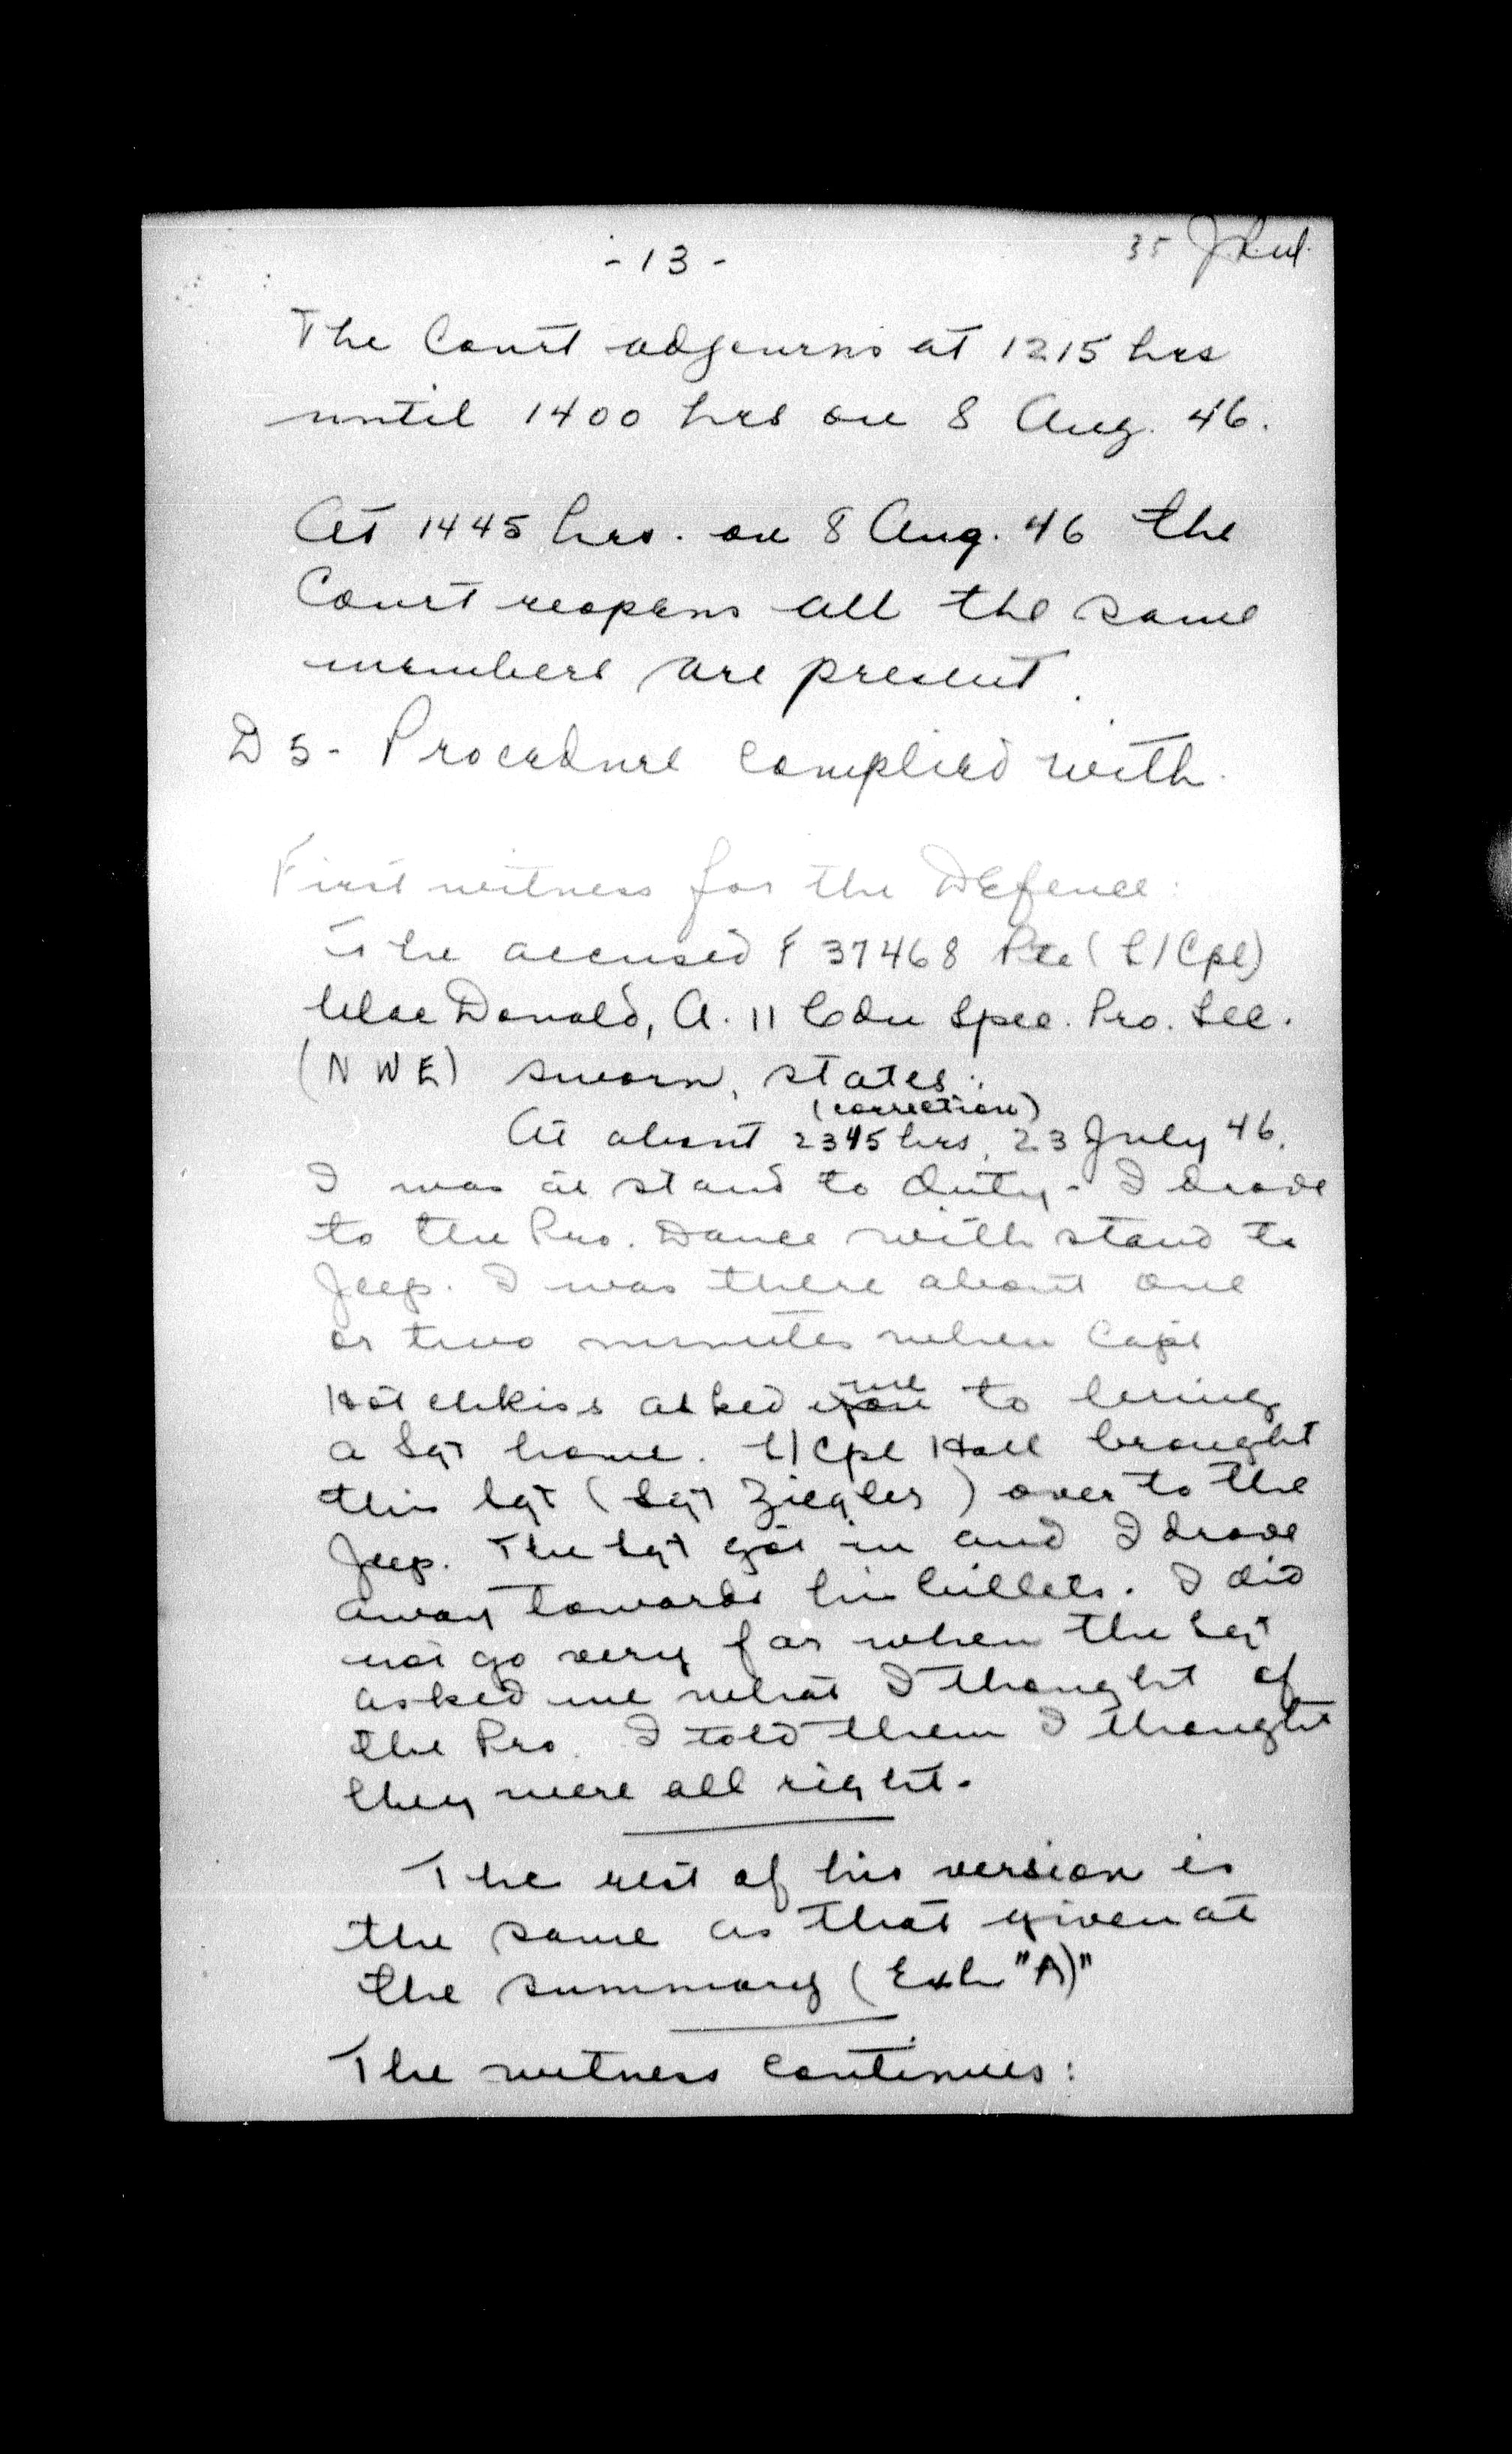 - 13 -
35
The Court adjourns at 1215 hrs
until 1400 hrs on 8 Aug. 46.
At 1445 hrs. on 8 Aug. 46 the
Court reopens all the same
members are present.
D 5 - Procedure complied with.
First witness for the Defence:
The accused F 37468 Pte (L/Cpl)
MacDonald, A. 11 Cdn Spec. Pro. Sec.
(NWE) sworn, states:
(correction)
At about 2345 hrs, 23 July 46.
I was at stand to duty - I drove
to the Pro. Dance with stand to
Jeep. I was there about one
or two minutes when Capt
me
Hotchkiss asked you to bring
a Sgt home. L/Cpl Hall brought
this Sgt (Sgt Ziegler) over to the
Jeep. The Sgt got in and I drove
away towards his billets. I did
not go very far when the Sgt
asked me what I thought of
the Pro. I told them I thought
they were all right.
The rest of his version is
the same as that given at
the summary (Exh "A)"
The witness continues: